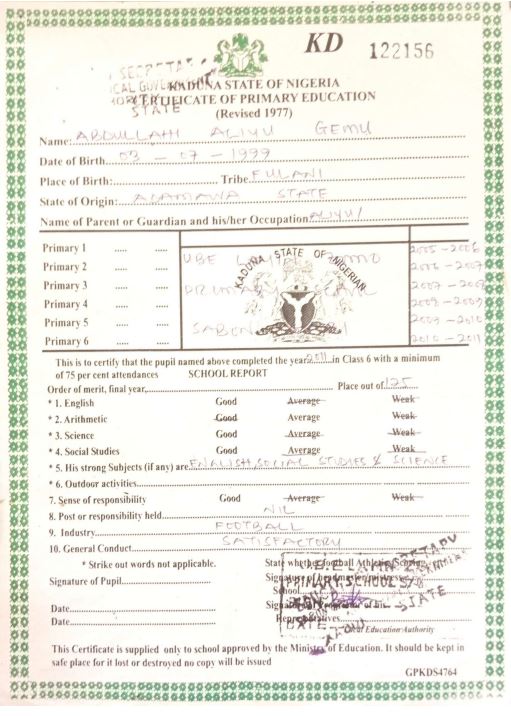 KD 122156
SECRETA
KADUNA STATE OF NIGERIA
CERTIFICATE OF PRIMARY EDUCATION
STATE
(Revised 1977)
Name: ABDULLAHI ALIYU GEMU
Date of Birth 03 - 07 - 1999
Place of Birth: Tribe FULANI
State of Origin: ADAMAWA STATE
Name of Parent or Guardian and his/her Occupation ALIYU
Primary 1 ..... ..... 2005 - 2006
Primary 2 ..... ..... UBE 2006 - 2007
KADUNA STATE OF NIGERIA
Primary 3 ..... ..... 2007 - 2008
Primary 4 ..... ..... 2008 - 2009
Primary 5 ..... ..... SABON 2009 - 2010
Primary 6 ..... ..... 2010 - 2011
This is to certify that the pupil named above completed the year 2011 in Class 6 with a minimum
of 75 per cent attendances SCHOOL REPORT
Order of merit, final year, Place out of 125
* 1. English Good Average Weak
* 2. Arithmetic Good Average Weak
* 3. Science Good Average Weak
* 4. Social Studies Good Average Weak
* 5. His strong Subjects (if any) are ENGLISH, SOCIAL STUDIES & SCIENCE
* 6. Outdoor activities
7. Sense of responsibility Good Average Weak
8. Post or responsibility held NIL
9. Industry FOOTBALL
10. General Conduct SATISFACTORY
* Strike out words not applicable. State whether football Athletic
Signature of Pupil Signature of
PRIMARY SCHOOL
School
Date
DATE STATE
Date Representatives
Local Education Authority
This Certificate is supplied only to school approved by the Ministry of Education. It should be kept in
safe place for it lost or destroyed no copy will be issued
GPKDS4764